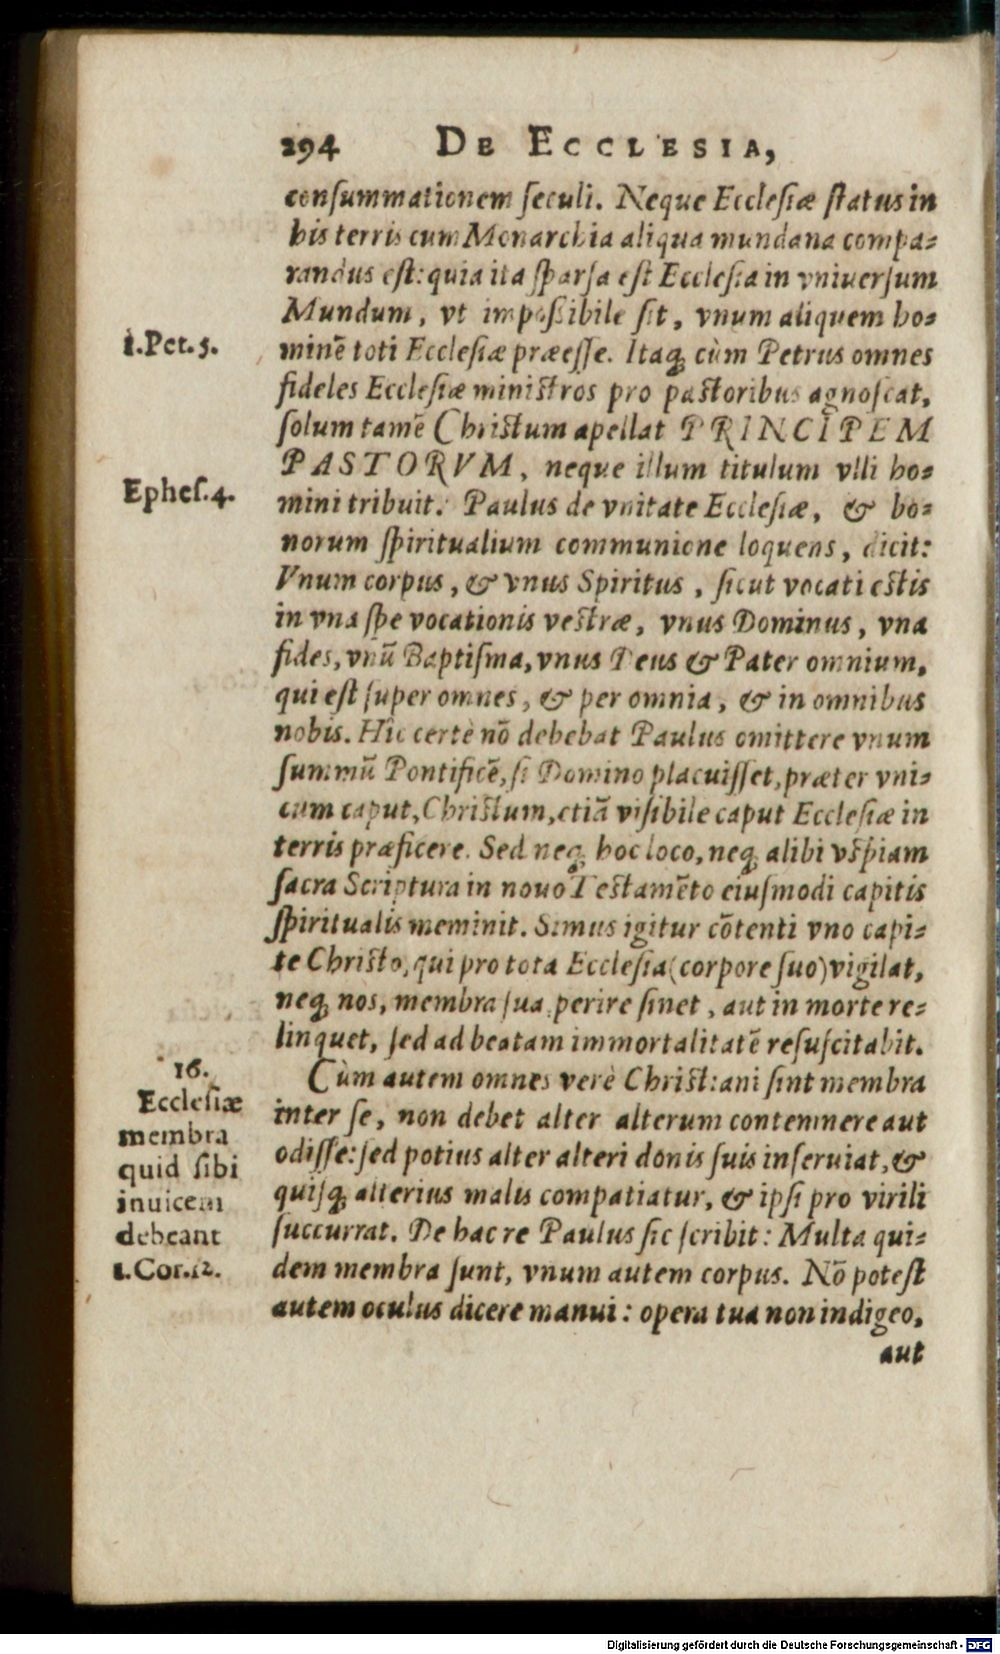 294 DE ECCLESIA,
conſummationem ſeculi. Neque Eccleſiæ ſtatus in
his terris cum Monarchia aliqua mundana compa-
randus eſt: quia ita ſparſa eſt Eccleſia in vniuerſum
Mundum, vt impoſſibile ſit, vnum aliquem ho-
minē toti Eccleſiæ præeſſe. Itaq; cùm Petrus omnes
1.Pet.5.
fideles Eccleſiæ miniſtros pro paſtoribus agnoſcat,
ſolum tamē Chriſtum apellat PRINCIPEM
PASTORVM, neque illum titulum vlli ho-
mini tribuit. Paulus de vnitate Eccleſiæ, & bo-
Epheſ.4.
norum ſpiritualium communione loquens, dicit:
Vnum corpus, & vnus Spiritus, ſicut vocati eſtis
in vna ſpe vocationis veſtræ, vnus Dominus, vna
fides, vnū Baptiſma, vnus Deus & Pater omnium,
qui eſt ſuper omnes, & per omnia, & in omnibus
nobis. Hîc certè nō debebat Paulus omittere vnum
ſummū Pontificē, ſi Domino placuiſſet, præter vni-
cum caput, Chriſtum, etiā viſibile caput Eccleſiæ in
terris præficere. Sed neq; hoc loco, neq; alibi vſpiam
ſacra Scriptura in nouo Teſtamēto eiuſmodi capitis
ſpiritualis meminit. Simus igitur cōtenti vno capi-
te Chriſto, qui pro tota Eccleſia (corpore ſuo) vigilat,
neq; nos, membra ſua, perire ſinet, aut in morte re-
linquet, ſed ad beatam immortalitatē reſuſcitabit.
16.
Eccleſiæ
membra
quid ſibi
inuicem
debeant
1.Cor.12.
Cùm autem omnes verè Chriſtiani ſint membra
inter ſe, non debet alter alterum contemnere aut
odiſſe: ſed potius alter alteri donis ſuis inſeruiat, &
quiſq; alterius malis compatiatur, & ipſi pro virili
ſuccurrat. De hac re Paulus ſic ſcribit: Multa qui-
dem membra ſunt, vnum autem corpus. Nō poteſt
autem oculus dicere manui: opera tua non indigeo,
aut
Digitalisierung gefördert durch die Deutsche Forschungsgemeinschaft - DFG